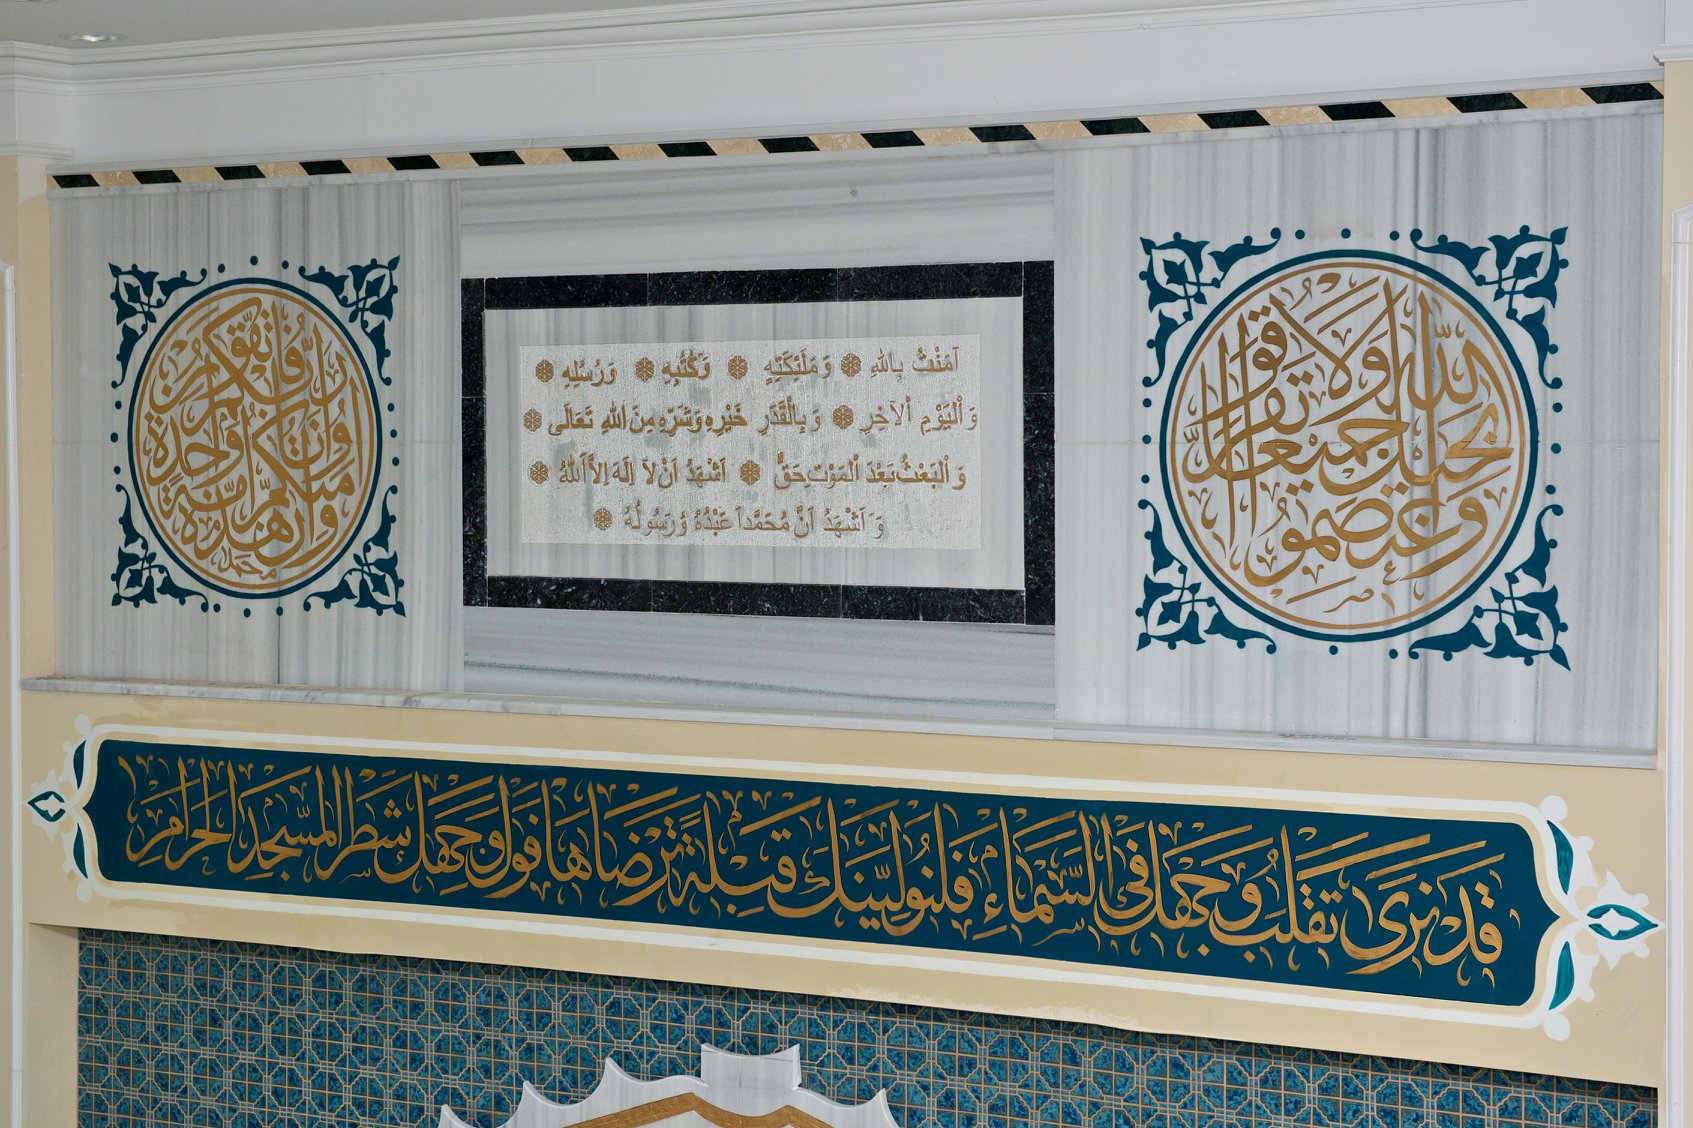 آمَنْتُ بِاللهِ وَمَلٰئِكَتِهِ وَكُتُبِهِ وَرُسُلِهِ
وَالْيَوْمِ الْآخِرِ وَبِالْقَدَرِ خَيْرِهِ وَشَرِّهِ مِنَ اللهِ تَعَالَى
وَالْبَعْثُ بَعْدَ الْمَوْتِ حَقٌّ اَشْهَدُ اَنْ لَا اِلٰهَ اِلَّا اللهُ
وَاَشْهَدُ اَنَّ مُحَمَّداً عَبْدُهُ وَرَسُولُهُ
وَاعْتَصِمُوا بِحَبْلِ اللّٰهِ جَمِيعًا وَلَا تَفَرَّقُوا
وَإِنَّ هٰذِهِ أُمَّتُكُمْ أُمَّةً وَاحِدَةً وَأَنَا رَبُّكُمْ فَاتَّقُونِ
محمد
قَدْ نَرَى تَقَلُّبَ وَجْهِكَ فِي السَّمَاءِ فَلَنُوَلِّيَنَّكَ قِبْلَةً تَرْضَاهَا فَوَلِّ وَجْهَكَ شَطْرَ الْمَسْجِدِ الْحَرَامِ